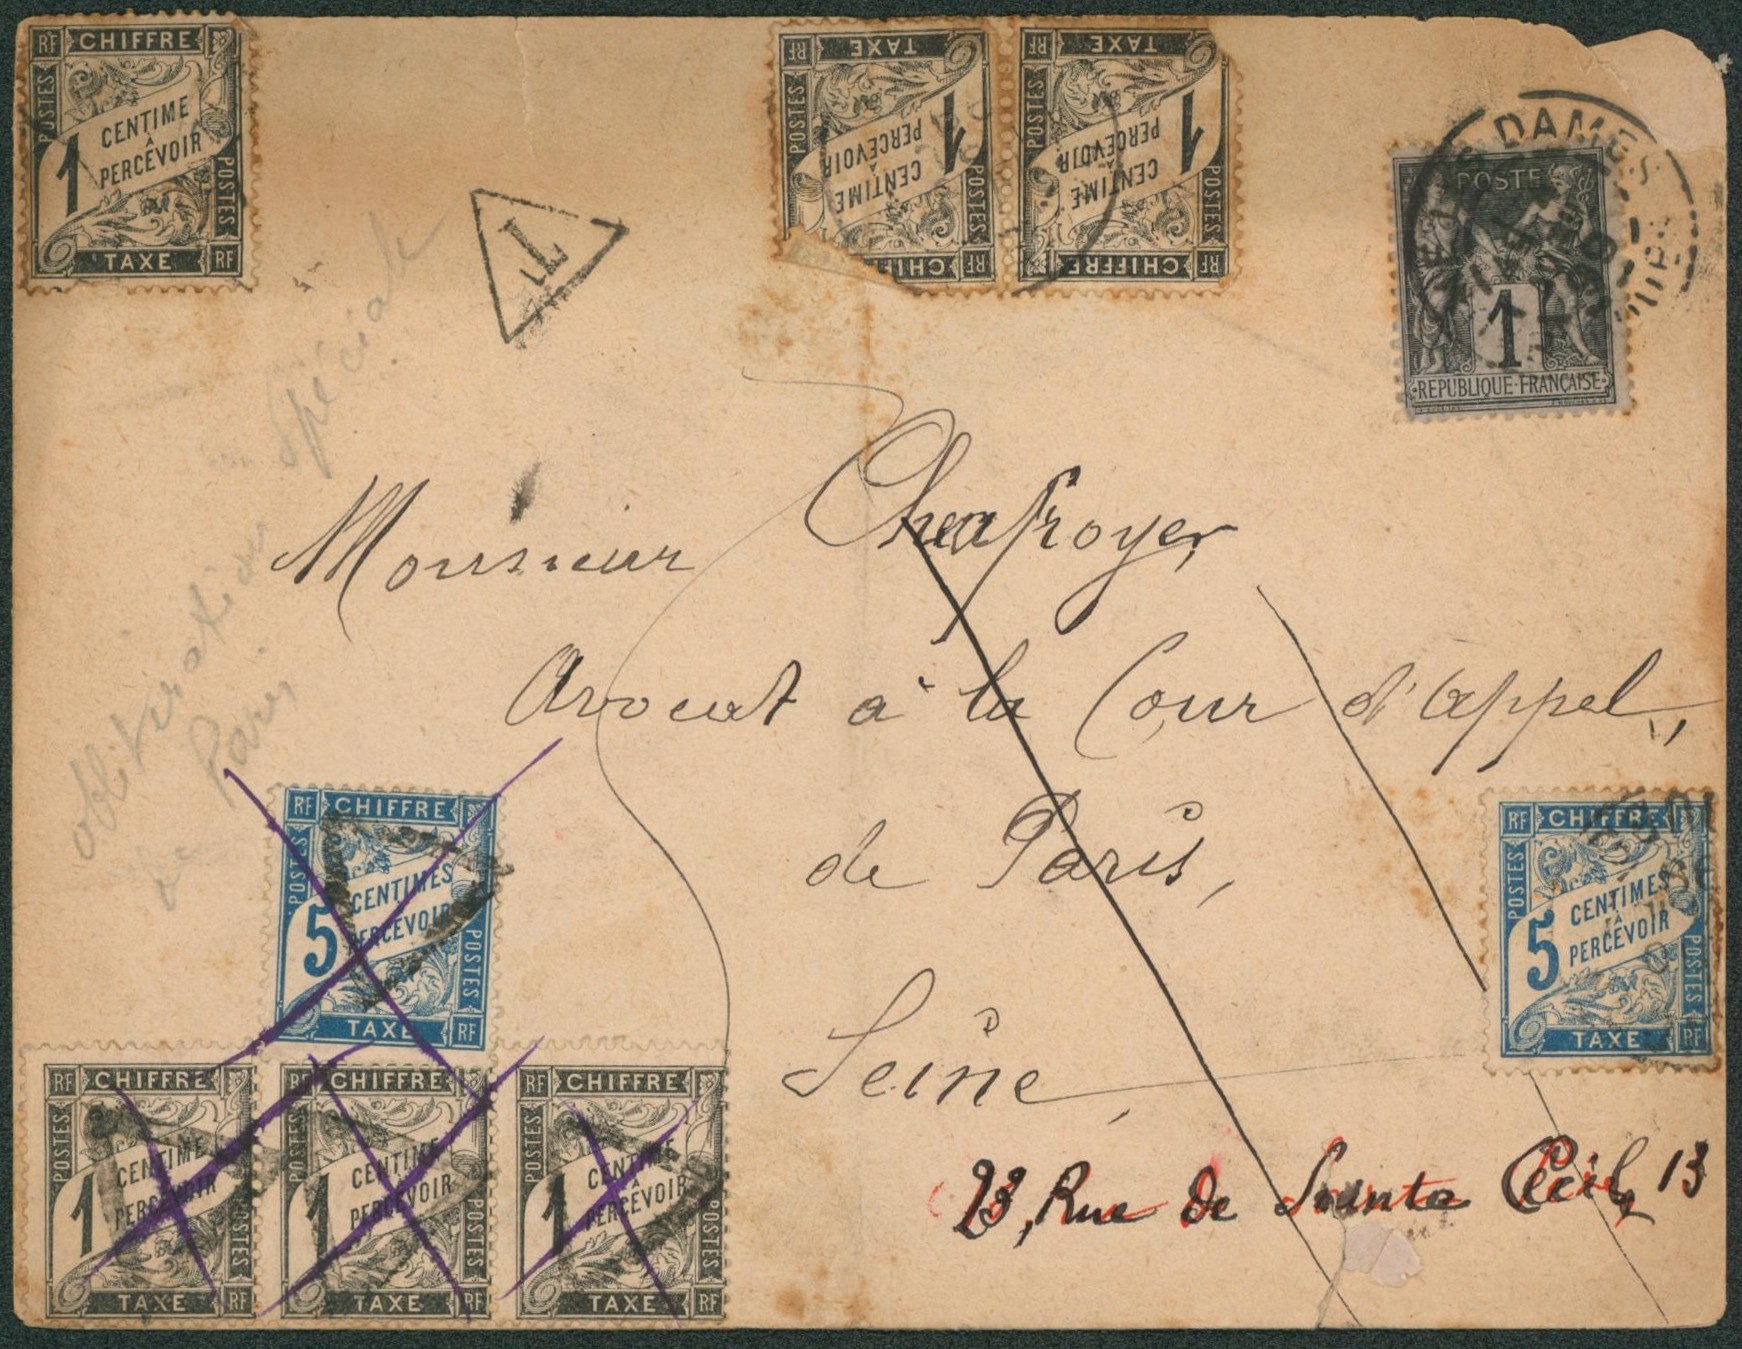 RF CHIFFRE
POSTES
1 CENTIME
À
PERCEVOIR
POSTES
TAXE RF
T
RF CHIFFRE
POSTES
1 CENTIME
À
PERCEVOIR
POSTES
TAXE RF
RF CHIFFRE
POSTES
1 CENTIME
À
PERCEVOIR
POSTES
TAXE RF
DAMES
POSTE
1
REPUBLIQUE FRANÇAISE
oblitération spéciale
de Paris
Monsieur
Avocat à la Cour d'appel,
de Paris,
Seine,
23, Rue de Sainte Cécile, 13
RF CHIFFRE
POSTES
5 CENTIMES
À
PERCEVOIR
POSTES
TAXE RF
RF CHIFFRE
POSTES
5 CENTIMES
À
PERCEVOIR
POSTES
TAXE RF
RF CHIFFRE
POSTES
1 CENTIME
À
PERCEVOIR
POSTES
TAXE RF
RF CHIFFRE
POSTES
1 CENTIME
À
PERCEVOIR
POSTES
TAXE RF
RF CHIFFRE
POSTES
1 CENTIME
À
PERCEVOIR
POSTES
TAXE RF